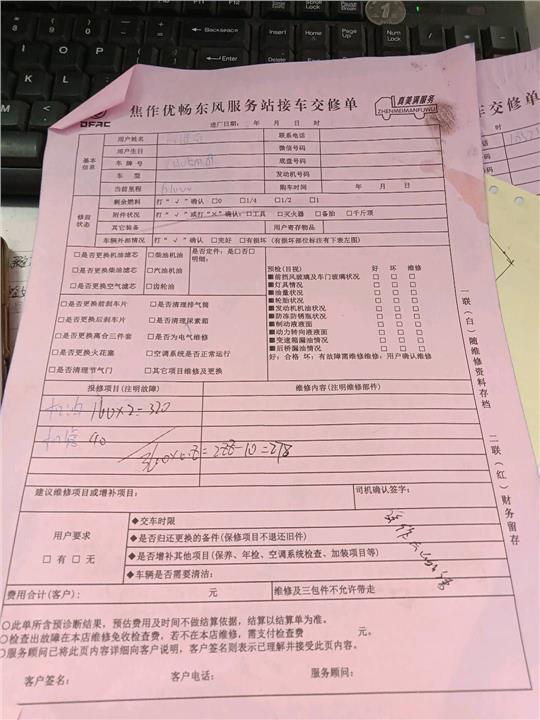 DFAC
焦作优畅东风服务站接车交修单
真美满服务
ZHENMEIMANFUWU
进厂日期： 年 月 日 时
基本信息
用户姓名
联系电话
用户生日
微信号码
车牌号
底盘号码
车型
发动机号码
当前里程
购车时间 年 月 日
修前状态
剩余燃料 打“√”确认 □0 □1/4 □1/2 □1
附件状况 打“√”或打“×”确认：□工具 □灭火器 □备胎 □千斤顶
其它装备
用户寄存物品
车辆外部情况 打“√”确认 □完好 □有损坏(有损坏部位标注有下表左图)
□是否更换机油滤芯 □柴油机油
□是否更换柴油滤芯 □汽油机油
□是否更换空气滤芯 □齿轮油
是否定件：是□否□
明细：
□是否更换前刹车片 □是否清理排气筒
□是否更换后刹车片 □是否清理尿素箱
□是否更换离合三件套 □是否为电气维修
□是否更换火花塞 □空调系统是否正常运行
□是否清理节气门 □其它项目维修及更换
预检(目视) 好 坏 维修
■前挡风玻璃及车门玻璃状况 □ □ □
■灯具情况 □ □ □
■油量状况 □ □ □
■轮胎状况 □ □ □
■发动机机油情况 □ □ □
■防冻防锈瓶状况 □ □ □
■制动液液面 □ □ □
■动力转向液液面 □ □ □
■变速箱漏油情况 □ □ □
■后桥漏油情况 □ □ □
好：合格 坏：有故障需维修维修：用户确认维修
报修项目(注明故障)
维修内容(注明维修部件)
机油 160×2=320
机滤 40
建议维修项目或增补项目：
司机确认签字：
用户要求
□有 □无
◆交车时限
◆是否归还更换的备件(保修项目不退还旧件)
◆是否增补其他项目(保养、年检、空调系统检查、加装项目等)
◆车辆是否需要清洁：
费用合计(客户)： 元
维修及三包件不允许带走
○此单所含预诊断结果，预估费用及时间不做结算依据，结算以结算单为准。
○检查出故障在本店维修免收检查费，若不在本店维修，需支付检查费 元。
○服务顾问已将此页内容详细向客户说明，客户签名则表示已理解并接受此页内容。
客户签名： 客户电话： 服务顾问：
一联（白）随维修资料存档 二联（红）财务留存